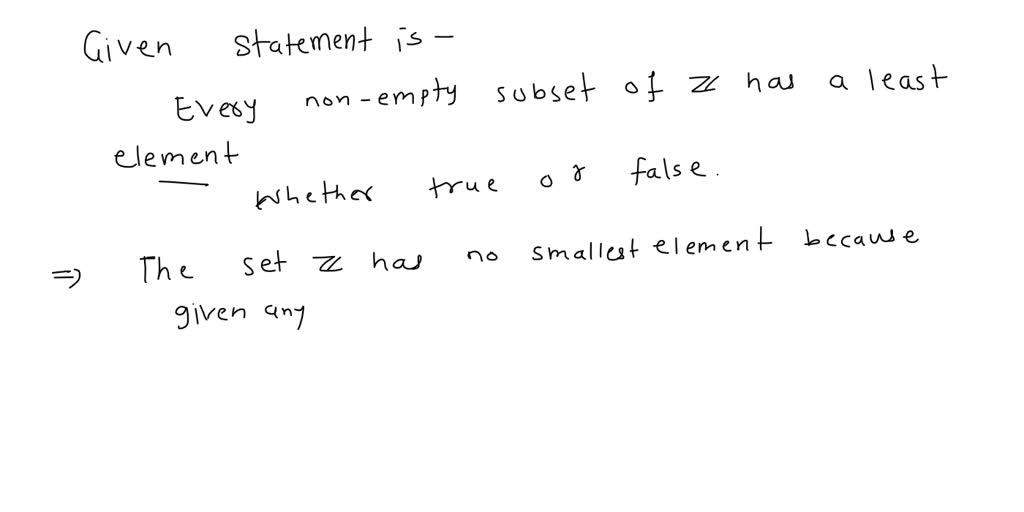 Given statement is –
Every non-empty subset of ℤ has a least
element
Whether true or false.
⇒ The set ℤ has no smallest element because
given any